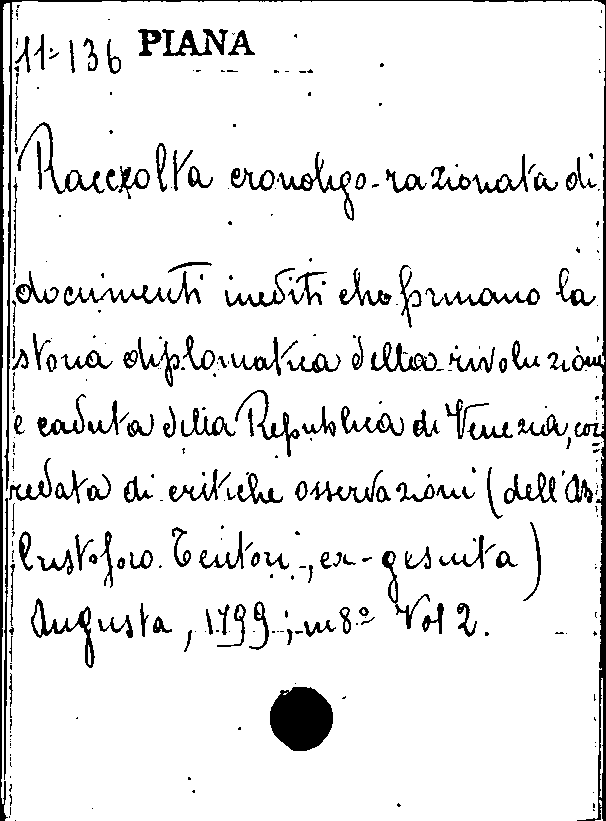 11-136 PIANA
Raccolta cronologo-razionata di
documenti inediti che formano la
storia diplomatica della rivoluzione
e caduta della Repubblica di Venezia, cor
redata di critiche osservazioni (dell'ab.
Cristoforo Tentori, ex-gesuita)
Augusta, 1799; in 8º Vol 2.